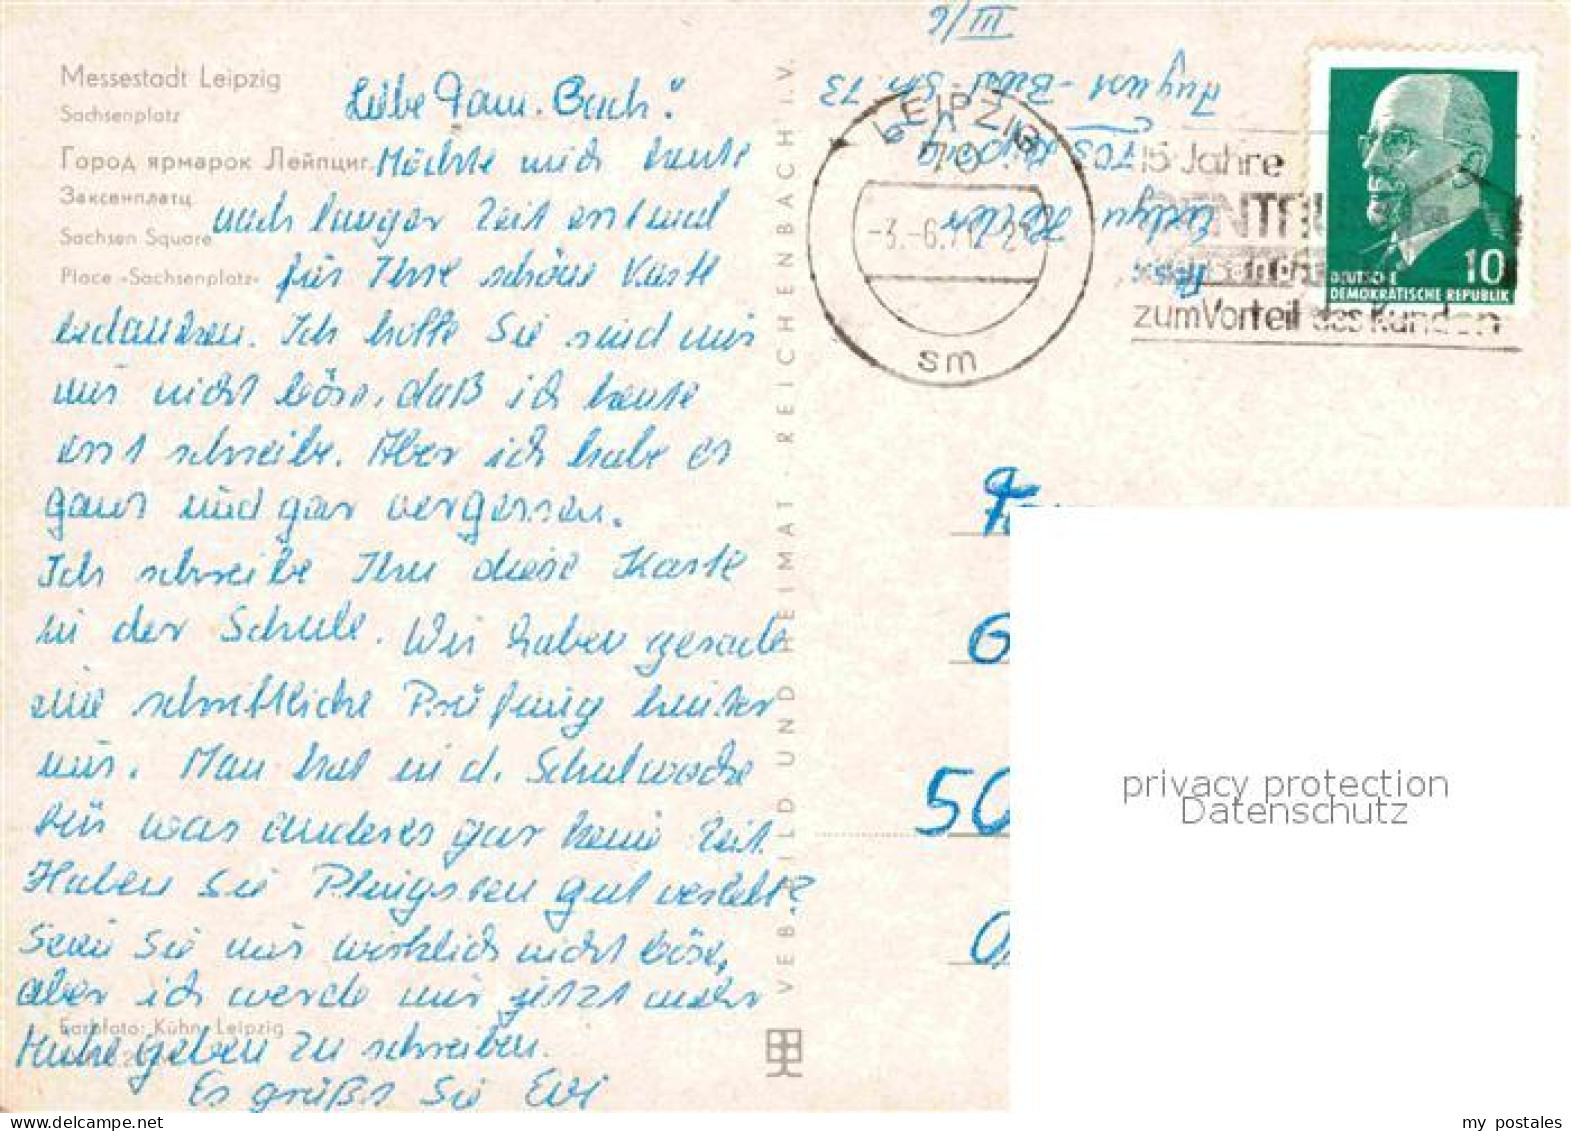 Messestadt Leipzig
Sachsenplatz
Город ярмарок Лейпциг
Заксенплатц
Sachsen Square
Place «Sachsenplatz»
Liebe Fam. Bach!
Möchte mich heute
nach langer Zeit erst mal
für Ihre schöne Karte
bedanken. Ich hoffe Sie sind mir
nicht böse, daß ich heute
erst schreibe. Aber ich habe es
ganz und gar vergessen.
Ich schreibe Ihn diese Karte
in der Schule. Wir haben gerade
eine schriftliche Prüfung hinter
uns. Man hat in d. Schulwoche
für was anderes gar keine Zeit.
Haben Sie Pfingsten gut verlebt?
Sein Sie mir wirklich nicht böse,
aber ich werde mir jetzt mehr
Mühe geben zu schreiben.
Es grüßt Sie Evi
Farbfoto: Kühn, Leipzig
VEB BILD UND HEIMAT · REICHENBACH I. V.
9/III
August-Bebel Str. 73
705 Leipzig
LEIPZIG
-3.-6.7
sm
15 Jahre
CENTRUM
zum Vorteil des Kunden
10
DEUTSCHE
DEMOKRATISCHE REPUBLIK
50
privacy protection
Datenschutz
delcampe.net
my_postales